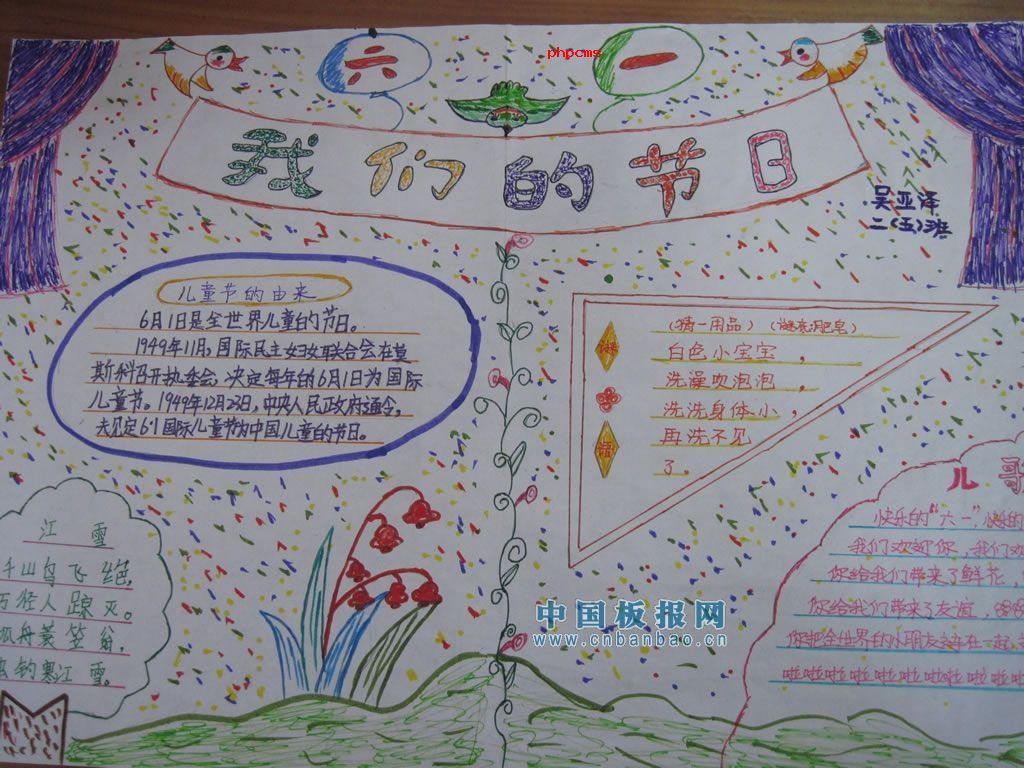 phpcms
六 一
我们的节日
吴亚泽
二(五)班
儿童节的由来
6月1日是全世界儿童的节日。
1949年11月,国际民主妇女联合会在莫
斯科召开执委会,决定每年的6月1日为国际
儿童节。1949年12月23日,中央人民政府通令,
规定6·1国际儿童节为中国儿童的节日。
谜语
(猜一用品)(谜底:肥皂)
白色小宝宝,
洗澡吹泡泡,
洗洗身体小,
再洗不见
了。
江雪
千山鸟飞绝,
万径人踪灭。
孤舟蓑笠翁,
独钓寒江雪。
儿歌
快乐的“六一”,快乐的
我们欢迎你,我们欢
你给我们带来了鲜花,
你给我们带来了友谊,
你把全世界的小朋友牵在一起,
啦啦啦啦啦啦啦啦啦啦啦
中国板报网
www.cnbanbao.cn